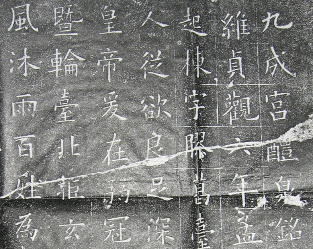 九成宮醴泉銘
維貞觀六年孟
起棟宇膠葛臺
人從欲良足深
皇帝爰在弱冠
暨輪臺北拒玄
風沐雨百姓為